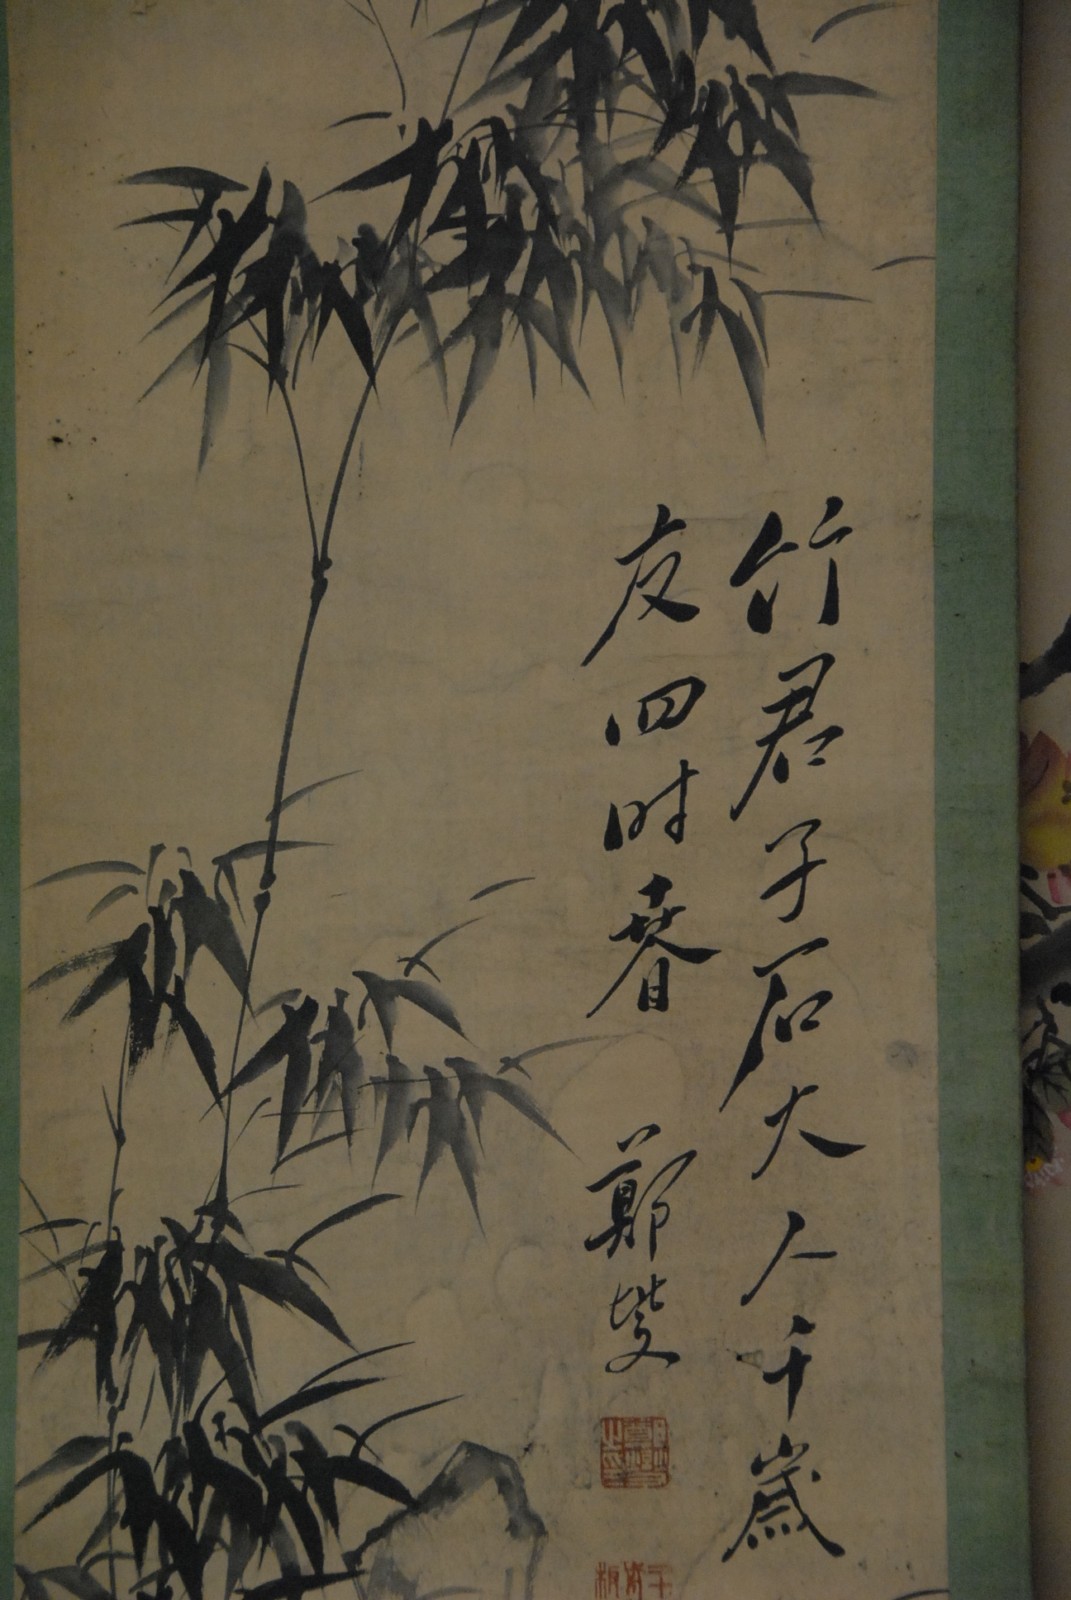 竹君子石大人千歳
友四时春 鄭燮